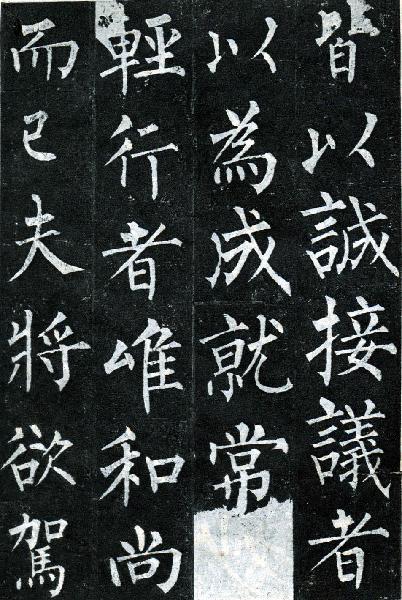 皆以誠接議者
以為成就常
輕行者唯和尚
而已夫將欲駕